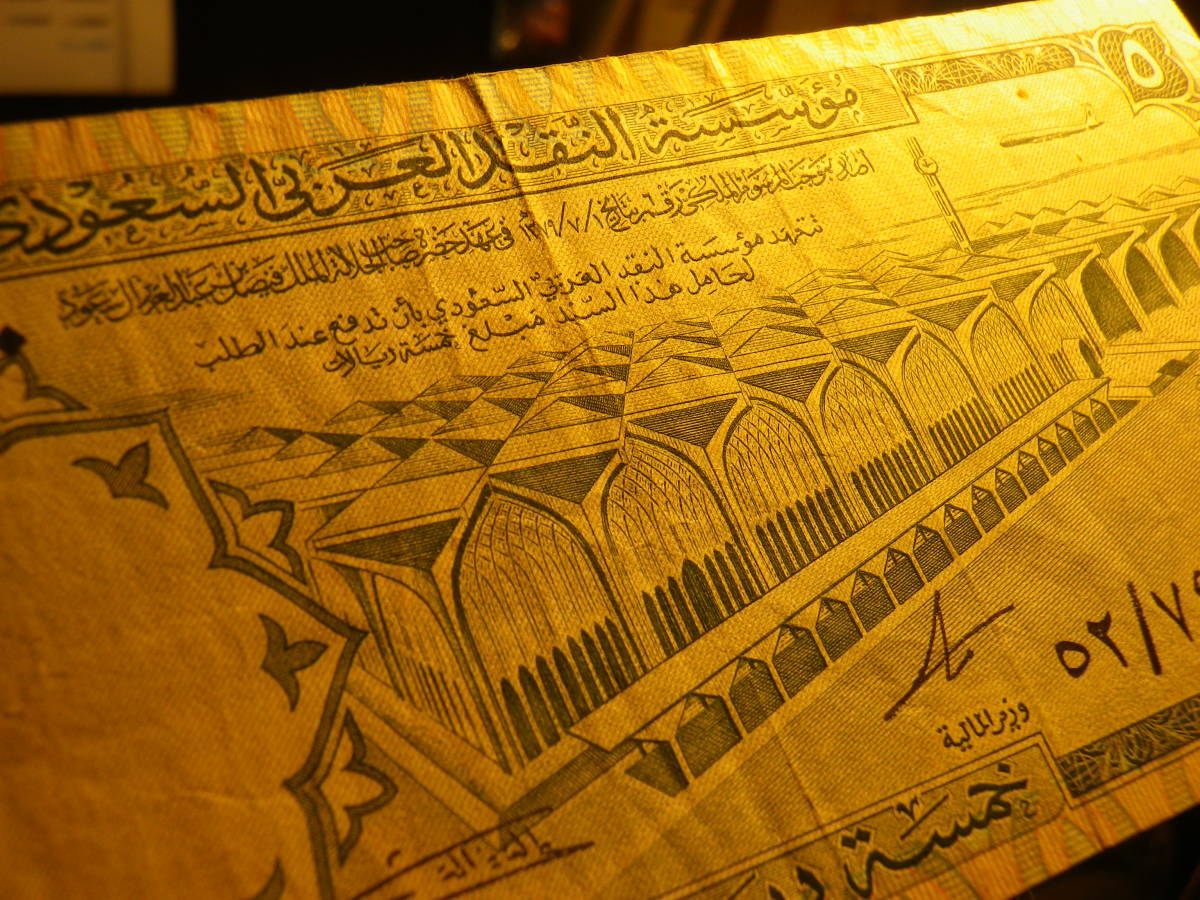 ٥
مؤسسة النقد العربي السعودي
أصدر بموجب المرسوم الملكي رقم تاريخ ١/٧/١٣٧٩ في عهد حضرة صاحب الجلالة الملك فيصل بن عبد العزيز آل سعود
تتعهد مؤسسة النقد العربي السعودي بأن تدفع عند الطلب
لحامل هذا السند مبلغ خمسة ريالات
٥٢/٧
وزير المالية
خمسة